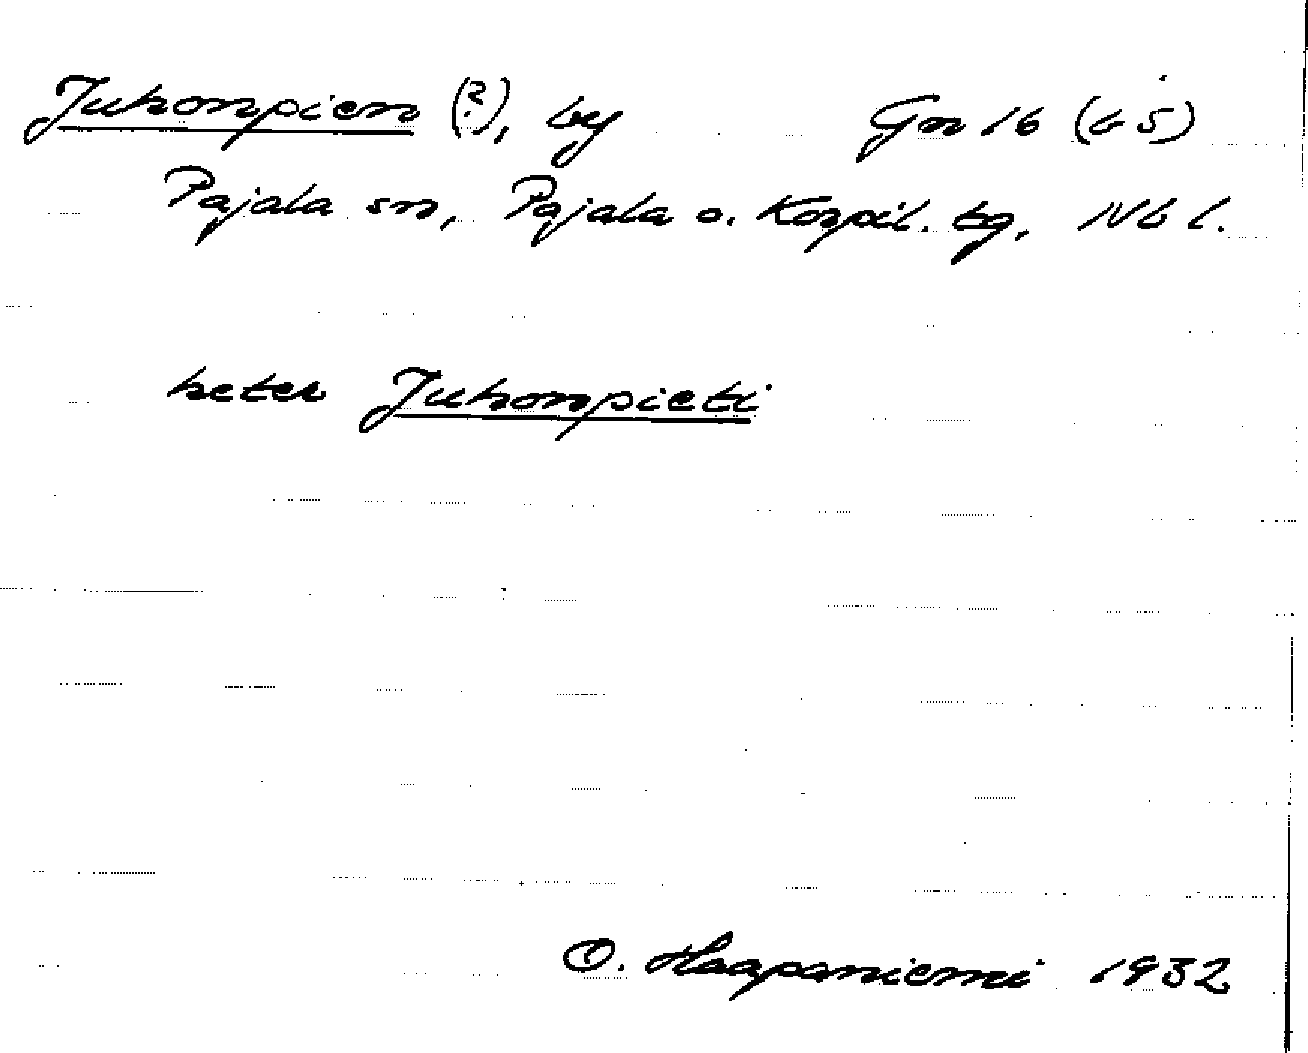 Juhonpien (?), by Gn 16 (b 5)
Pajala sn, Pajala o. Korpil. tg, Nb l.
heter Juhonpieti
O. Haapaniemi 1932